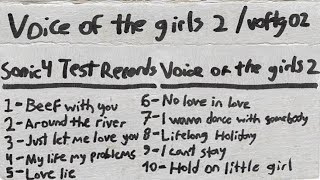 Voice of the girls 2/voftg02
Sonic4 Test Records
1-Beef with you
2-Around the river
3-Just let me love you
4-My life my problems
5-Love lie
Voice of the girls 2
6-No love in love
7-I wanna dance with somebody
8-Lifelong Holiday
9-I cant stay
10-Hold on little girl